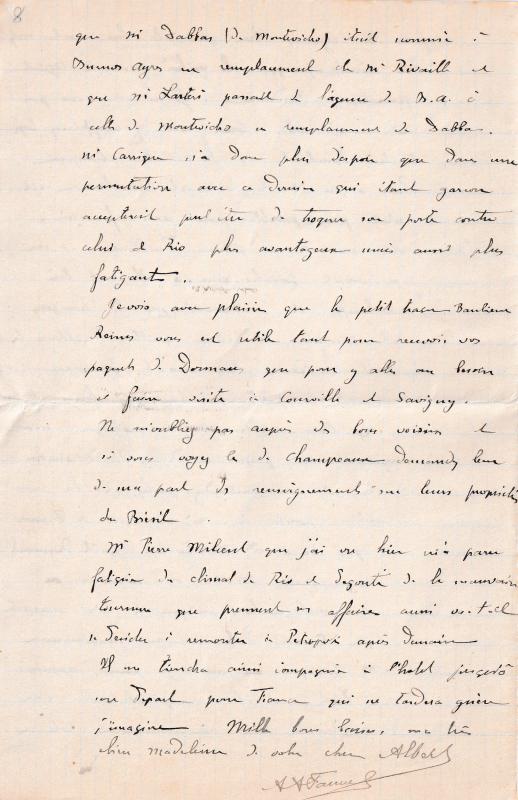 8
que Mr Dabbas (de Montevideo) était nommé à
Buenos Ayres en remplacement de Mr Rivaille et
que Mr passait de l'agence de B.A. à
celle de Montevideo en remplacement de Dabbas.
Mr Carrigue n'a donc plus d'espoir que dans une
permutation avec ce dernier qui étant garçon
accepterait peut être de troquer son poste contre
celui de Rio plus avantageux mais aussi plus
fatigant.
Je vois avec plaisir que le petit train Banlieue
Reims vous est utile tant pour recevoir vos
paquets de Dormans que pour y aller au besoin
et faire visite à Courville et Savigny.
Ne m'oubliez pas auprès des bons voisins et
si vous voyez les de Champeaux demandez leur
de ma part des renseignements sur leurs propriétés
du Brésil.
Mr Pierre que j'ai vu hier m'a paru
fatigué du climat de Rio et dégouté de la mauvaise
tournure que prennent ses affaires aussi est-il
décidé à remonter à Petropolis après demain
Il me tiendra ainsi compagnie à l'hotel jusqu'à
son départ pour France qui ne tardera guère
j'imagine Mille bons baisers, ma très
chère Madeleine de votre cher Albert